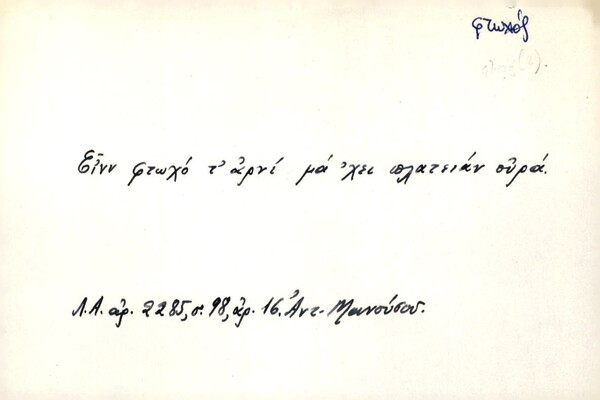 φτωχός
Εἶνν φτωχό τ' ἀρνί μά 'χει πλατειάν οὐρά.
Λ.Α. ἀρ. 2285, σ. 98, ἀρ. 16. Ἀντ. Μανούσου.